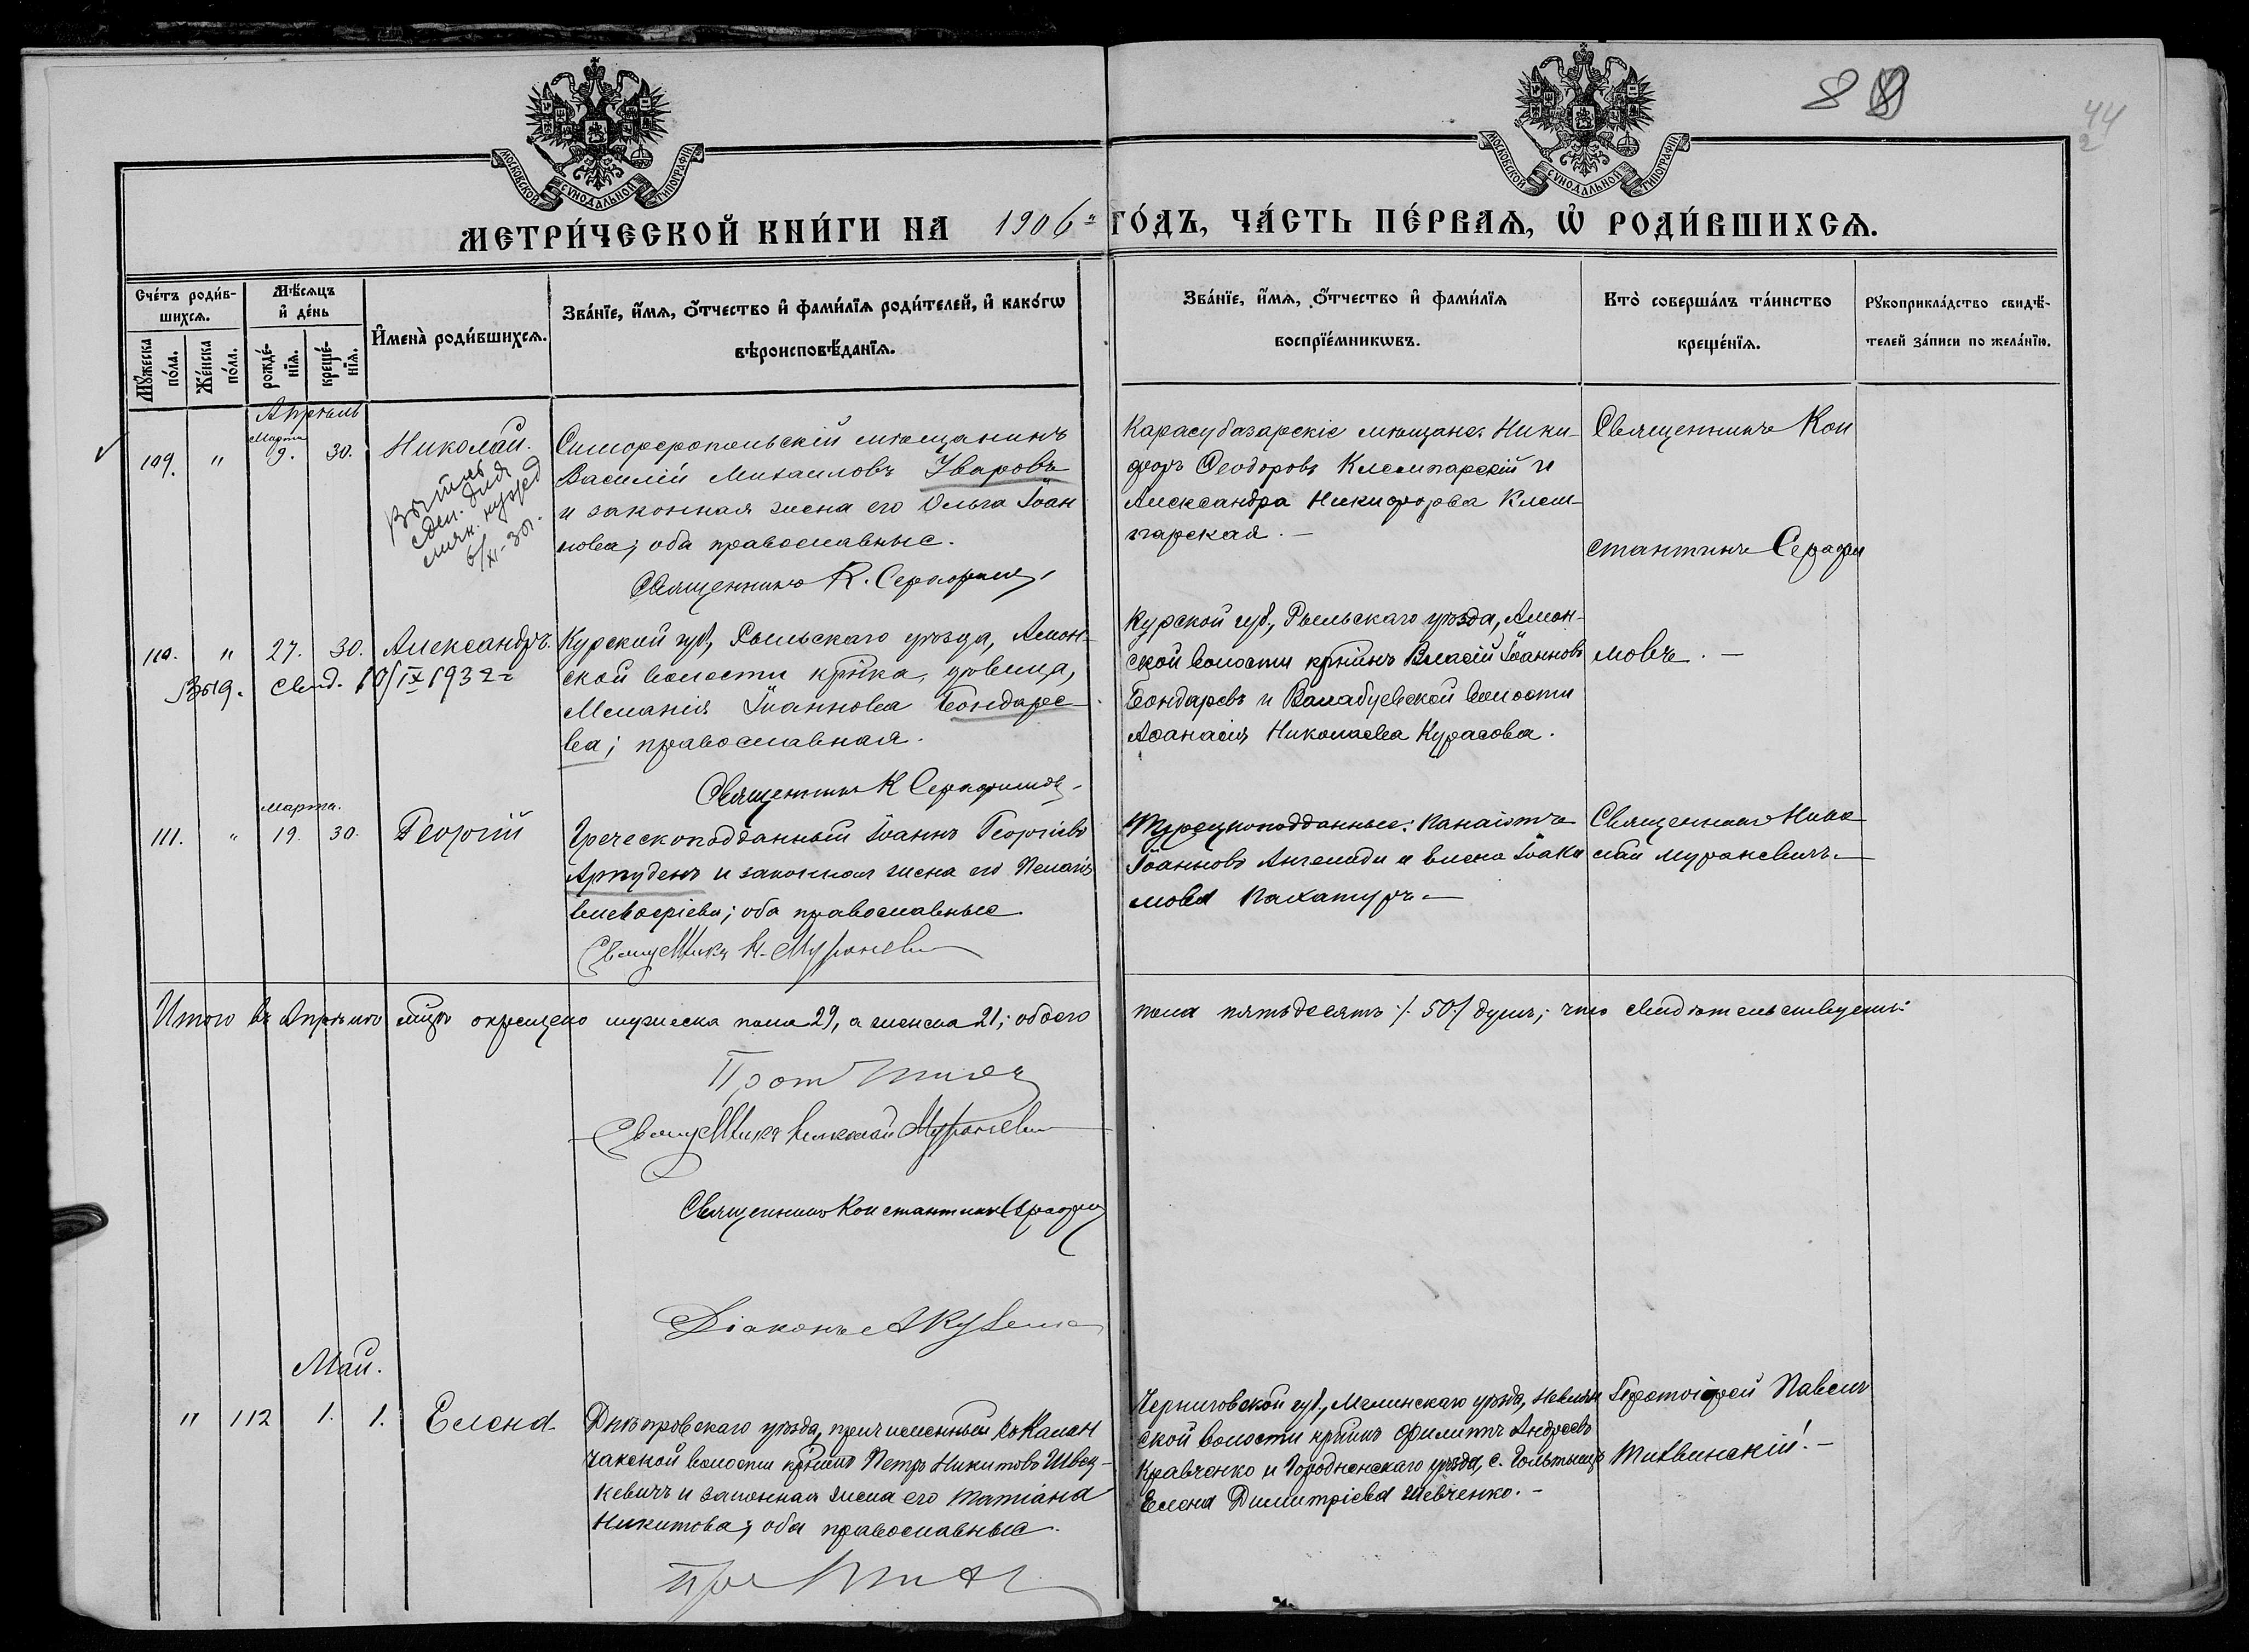 88
44
2
МОСКОВСКОЙ СУНОДАЛЬНОЙ ТИПОГРАФІИ
МОСКОВСКОЙ СУНОДАЛЬНОЙ ТИПОГРАФІИ
МЕТРИ́ЧЕСКОЙ КНИ́ГИ НА 1906 ГО́ДЪ, ЧА́СТЬ ПЕ́РВАѦ, Ѡ҆ РОДИ́ВШИХСѦ.
Сче́тъ роди́в-
шихсѧ.
Мꙋ́жеска по́ла.
Же́нска по́ла.
Мѣ́сѧцъ
и҆ де́нь
рожде́-нїѧ.
креще́-нїѧ.
И҆мена̀ роди́вшихсѧ.
Зва́нїе, и҆́мѧ, ѻ҆́тчество и҆ фами́лїѧ роди́телей, и҆ како́гѡ
вѣроисповѣ́данїѧ.
Зва́нїе, и҆́мѧ, ѻ҆́тчество и҆ фами́лїѧ
воспрїе́мникѡвъ.
Кто̀ соверша́лъ та́инство
креще́нїѧ.
Рꙋкоприкла́дство свидѣ́-
телей за́писи по жела́нїю.
Апрѣль
109. " Марта 9. 30. Николай.
Симферопольскій мѣщанинъ
Василій Михаиловъ Уваровъ
и законная жена его Ольга Іоан
нова; оба православные.
Священникъ К. Серафимовъ
6/XI-30г.
Карасубазарскіе мѣщане: Ники-
форъ Ѳеодоровъ Клемпарскій и
Александра Никифорова Клем-
парская. —
Священникъ Кон
стантинъ Серафи
мовъ. —
110. " 27. 30. Александръ.
Выд. свид. 10/IX 1932 г
Курской губ, Рыльскаго уѣзда, Амон-
ской волости кр-нка, дѣвица,
Меланія Іоаннова Бондаре-
ва; православная.
Священникъ К Серафимовъ
Курской губ, Рыльскаго уѣзда, Амон-
ской волости кр-нинъ Власій Іоанновъ
Бондаревъ и волости
Аѳанасія Николаева Курасова.
марта.
111. " 19. 30. Георгій
Греческоподданный Іоаннъ Георгіевъ
Артуденъ и законная жена его Пелагія
оба православные
Священникъ Н. Мураневичъ
Турецкоподданные: Панаіотъ
Іоанновъ Ангелиди и Елена Іоаки
мова
Священникъ Нико
лай Мураневичъ. —
Итого въ Апрѣлѣ м-цѣ окрещено мужеска пола 29, а женска 21; обоего
пола пятьдесятъ /50/ душъ; что свидѣтельствуемъ:
Священникъ Николай Мураневичъ
Священникъ Константинъ Серафимовъ
Діаконъ
Май.
" 112 1. 1. Елена
Днѣпровскаго уѣзда, причисленный къ Калан
чакской волости кр-нинъ Петръ Никитовъ Швец-
кевичъ и законная жена его Татіана
Никитова; оба православные.
Черниговской губ., уѣзда,
ской волости кр-нинъ Филиппъ Андреевъ
Кравченко и Городненскаго уѣзда, с.
Елена Димитріева Шевченко. —
Протоіерей Павелъ
Тихвинскій. —